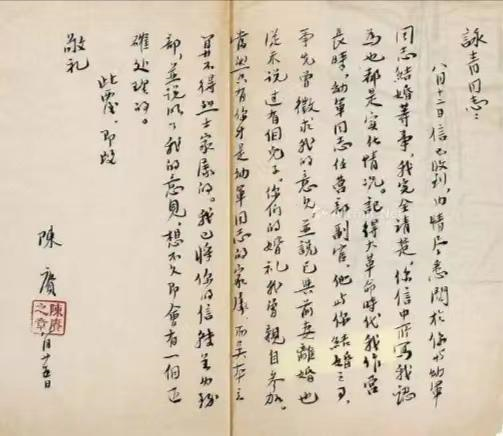 詠青同志：
八月十二日信已收到，内情尽悉関於你与幼軍
同志結婚等事，我完全清楚。你信中所写我認
為也都是实在情况。記得大革命時代我作营
長時，幼軍同志任营部副官，他与你結婚之事，
事先曾徵求我的意見並説已與前妻離婚也
従未说过有個兒子。你們的婚礼我曾親自参加。
當然只有你才是幼軍同志的家属，而吴
算不得烈士家属的。我已將你的信轉呈内務
部，並説明了我的意見，想不久即会有一個正
確处理的。
此覆，即頌
敬礼
陳賡
陳賡之章
月廿五日